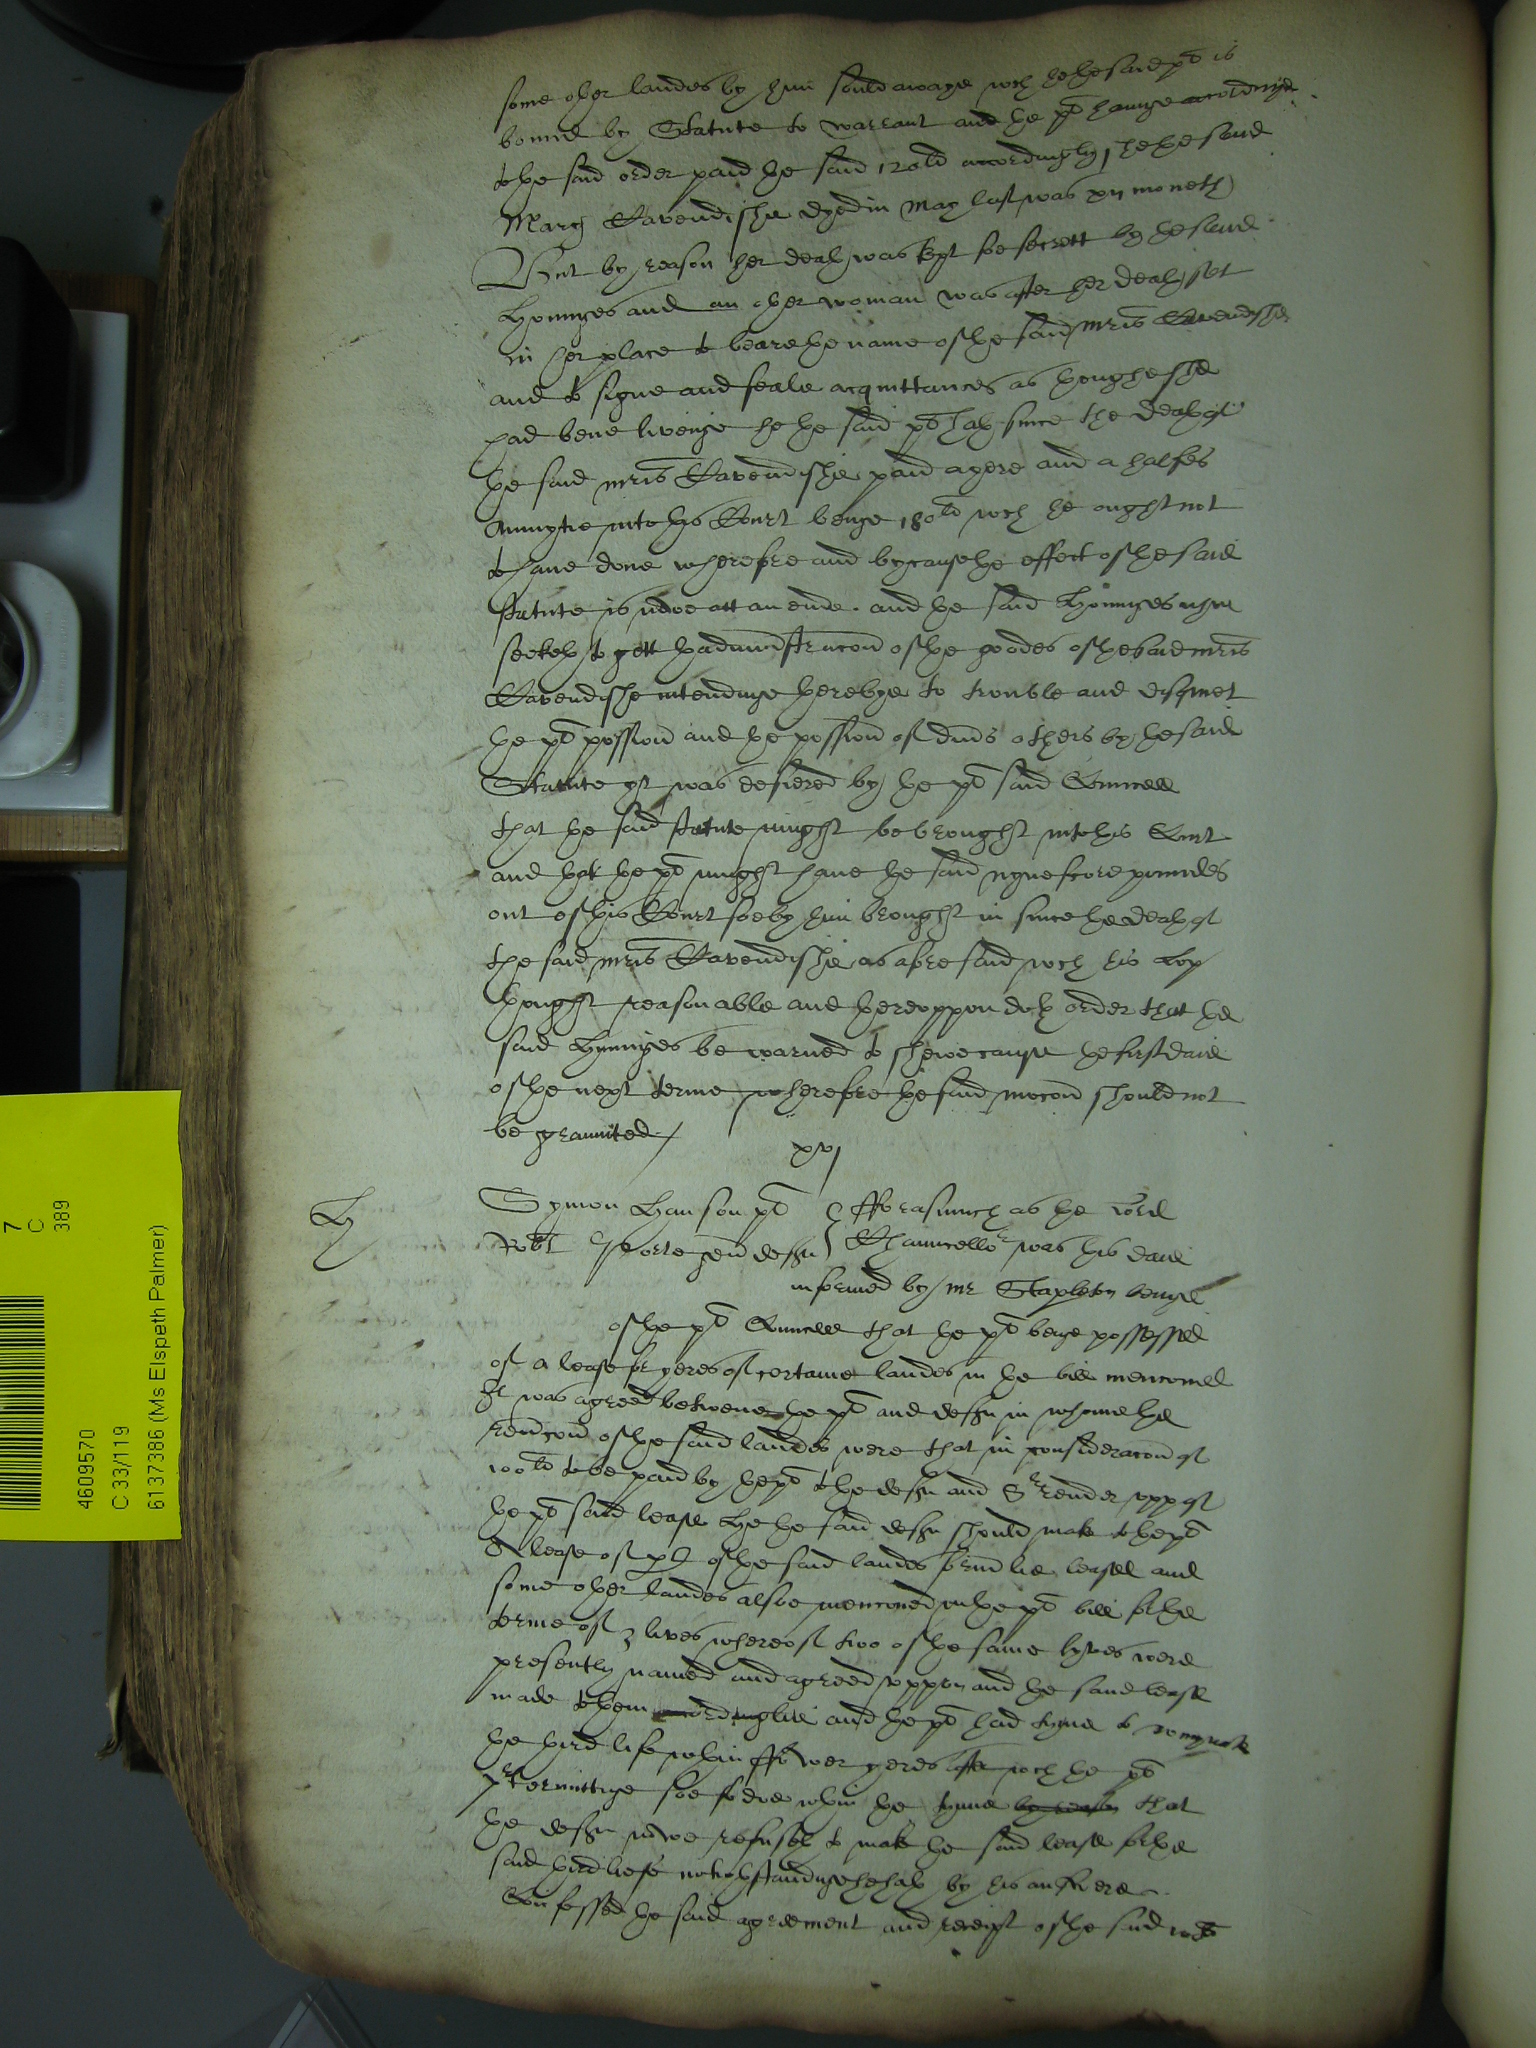 some other landes by him sould awaye wch he the said pt is
bound by Statute to warrant and the pt havinge accordinge
to the said order paid the said 120li accordingly, the said
Mary Cavendishe dyed in May last was xij moneth
But by reason her death was kept soe secrett by the said
Hynnyges and an other woman was after her death set
in her place to beare the name of the said Mris Cavendyshe
and to signe and seale acquittances as thoughe she
had bene livenge he the said pt hath since the death of
the said mris Cavendishe paid a yere and a halfes
Annuytie into this Court beinge 180li wch he ought not
to have done wherefore and bycause the effect of the said
statute is nowe att an ende. and the said Hynnyges
seeketh to gett thadministracon of the goodes of the said mris
Cavendishe intendinge therebye to trouble and disquiet
the pt possion and the possion of divds others by the said
Statute yt was desiered by the pt said Councell
that the said statute might be brought into this Court
and that the pt might have the said nynescore poundes
out of this Court soe by him brought in since the death of
the said mris Cavendishe as aforesaid wch his Lop
thought reasonable and thereuppon doth order that the
said Hynnyges be warned to shewe cause the first daie
of the next terme wherefore the said mocon should not
be graunted /
xvj
H
Symon Hanson pt } fforasmuch as the Lord
Robt gen deft } Chauncellor was this daie
informed by mr Stapleton beinge
of the pt Councell that the pt beinge possessed
of a lease for yeres of certaine landes in the bill menconed
It was agreed betwene the pt and deft in whome the
revercon of the said landes were that in consideracon of
100li to be paid by the pt to the deft and Surrender upp of
the pt said lease He the said deft should make to the pt
A lease of pt of the said landes formlie leased and
some other landes alsoe menconed in the pt bill for the
terme of 3 lives whereof two of the same lyves were
presently named and agreed uppon and the said lease
made to them accordinglie and the pt had tyme to nomynate
the third life within ffower yeres after wch the pt
pretermittinge soe to doe within the tyme by reason that
the deft nowe refuseth to make the said lease for the
said third liefe notwithstandinge he hath by his answere
Confessed the said agreement and receipt of the said 100li
7
C
389
4609570
C 33/119
6137386 (Ms Elspeth Palmer)